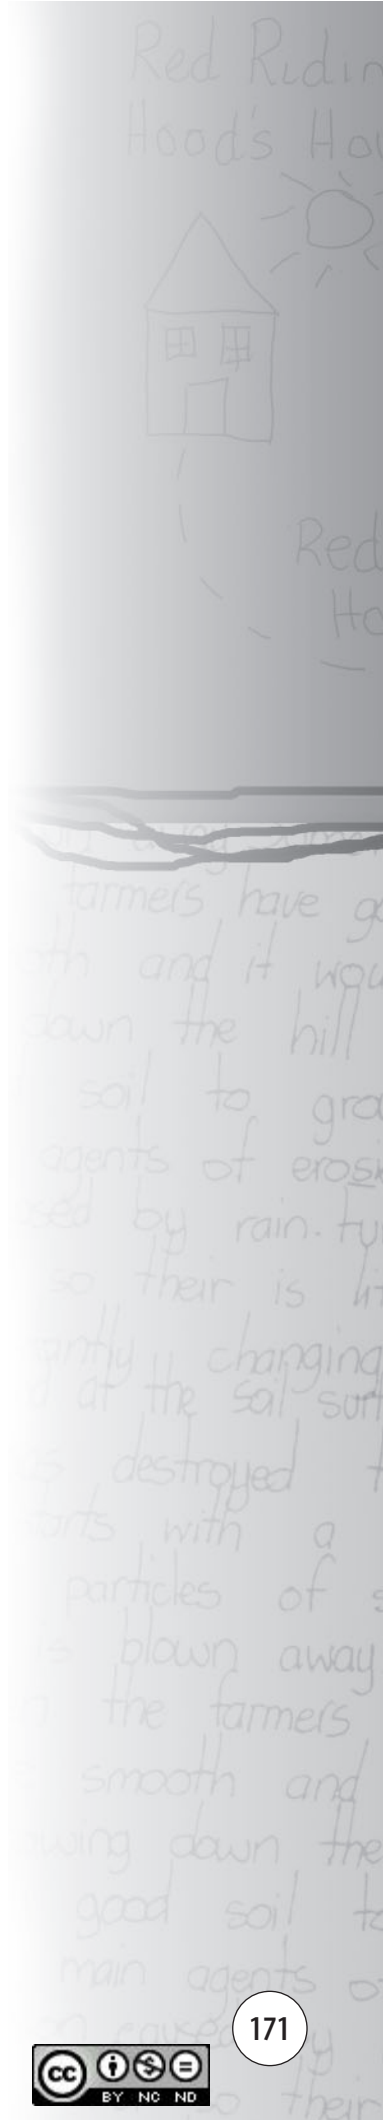 Red Ridin
Hood's Hou
Red
Ho
away some
farmers have go
and it wou
down the hill
soil to gro
agents of erosi
by rain. tu
so their is lit
changing
at the soil surf
destroyed t
with a
particles of s
is blown away
the farmers
smooth and
down the
good soil to
main agents o
171
caused by
cc
BY NC ND
so their